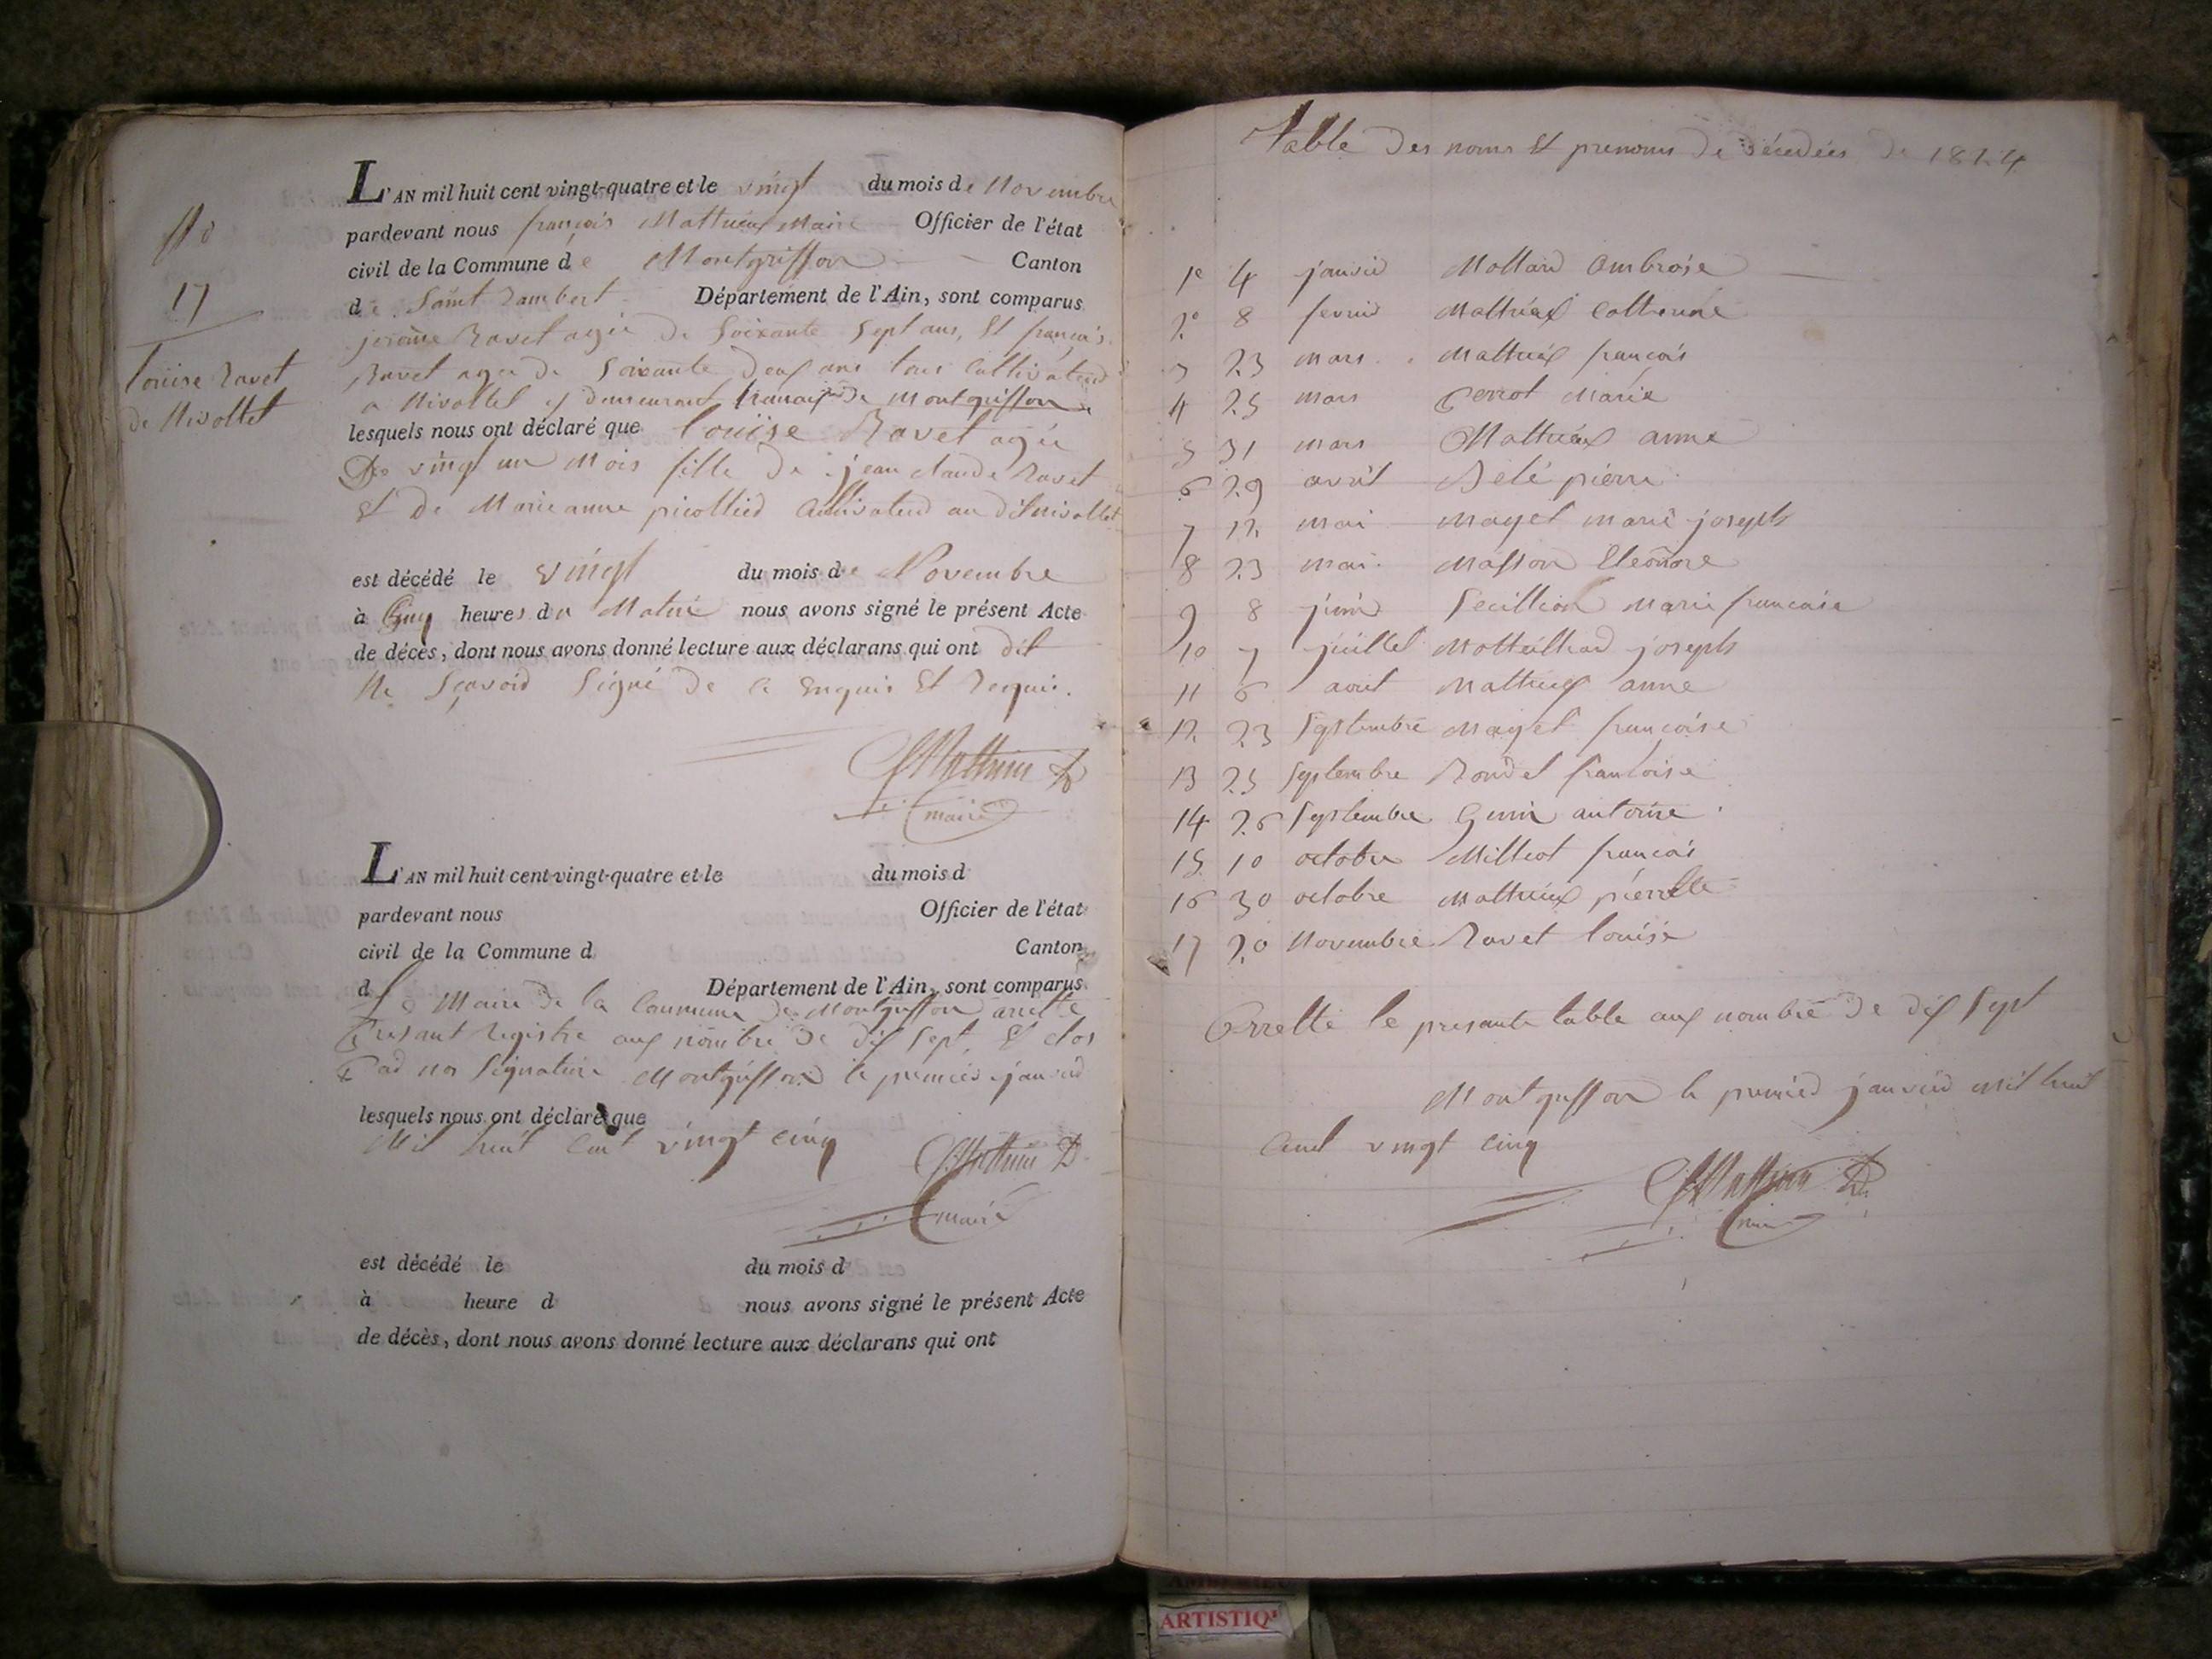 N°
17
louise Ravet
de Nivollet
L'AN mil huit cent vingt-quatre et le vingt du mois de Novembre
pardevant nous françois Mathieux Maire Officier de l'état
civil de la Commune de Montgriffon Canton
de Saint Rambert Département de l'Ain, sont comparus
jerome Ravet agée de Soixante Sept ans, Et françois
Ravet agee de Soixante deux ans tous Cultivateurs
a Nivollet y demeurant de Montgriffon
lesquels nous ont déclaré que louise Ravet agée
De vingt un Mois fille de jean claude Ravet
Et de Marie anne picollied Cultivateur au dit nivollet
est décédé le vingt du mois de Novembre
à Cinq heures du Matin nous avons signé le présent Acte
de décès, dont nous avons donné lecture aux déclarans qui ont dit
Ne Sçavoir Signé de ce Enquis Et Requis.
fMathieu
maire
L'AN mil huit cent vingt-quatre et le du mois d
pardevant nous Officier de l'état
civil de la Commune d Canton
d Département de l'Ain, sont comparus
Le Maire de la Commune de Montgriffon arrette
Presant Registre aux nombre de dix Sept, Et clos
Par nos Signature Montgriffon le premier janvier
lesquels nous ont déclaré que
Mil huit Cent vingt cinq fMathieu
maire
est décédé le du mois d
à heure d nous avons signé le présent Acte
de décès, dont nous avons donné lecture aux déclarans qui ont
Table Des noms Et prenoms de décédées de 1824
1e 4 janvier Mollard Ambroise
2e 8 fevrier Mathieux Catherine
3 23 mars Mathieux françois
4 25 mars Perrot Marie
5 31 mars Mathieux anne
6 29 avril Belé pierre
7 12 mai Mayet marie joseph
8 23 mai Masson Eleonore
9 8 juin Marie francoise
10 7 juillet joseph
11 6 aout Mathieux anne
12 23 Septembre Mayet françoise
13 25 Septembre Rondet francoise
14 26 Septembre Genin antoine
15 10 octobre Milliot françois
16 30 octobre Mathieux pierrette
17 20 Novembre Ravet louise
Arrette le presante table aux nombre de dix Sept
Montgriffon le premier janvier Mil huit
Cent vingt cinq
fMathieu
maire
ARTISTIQ